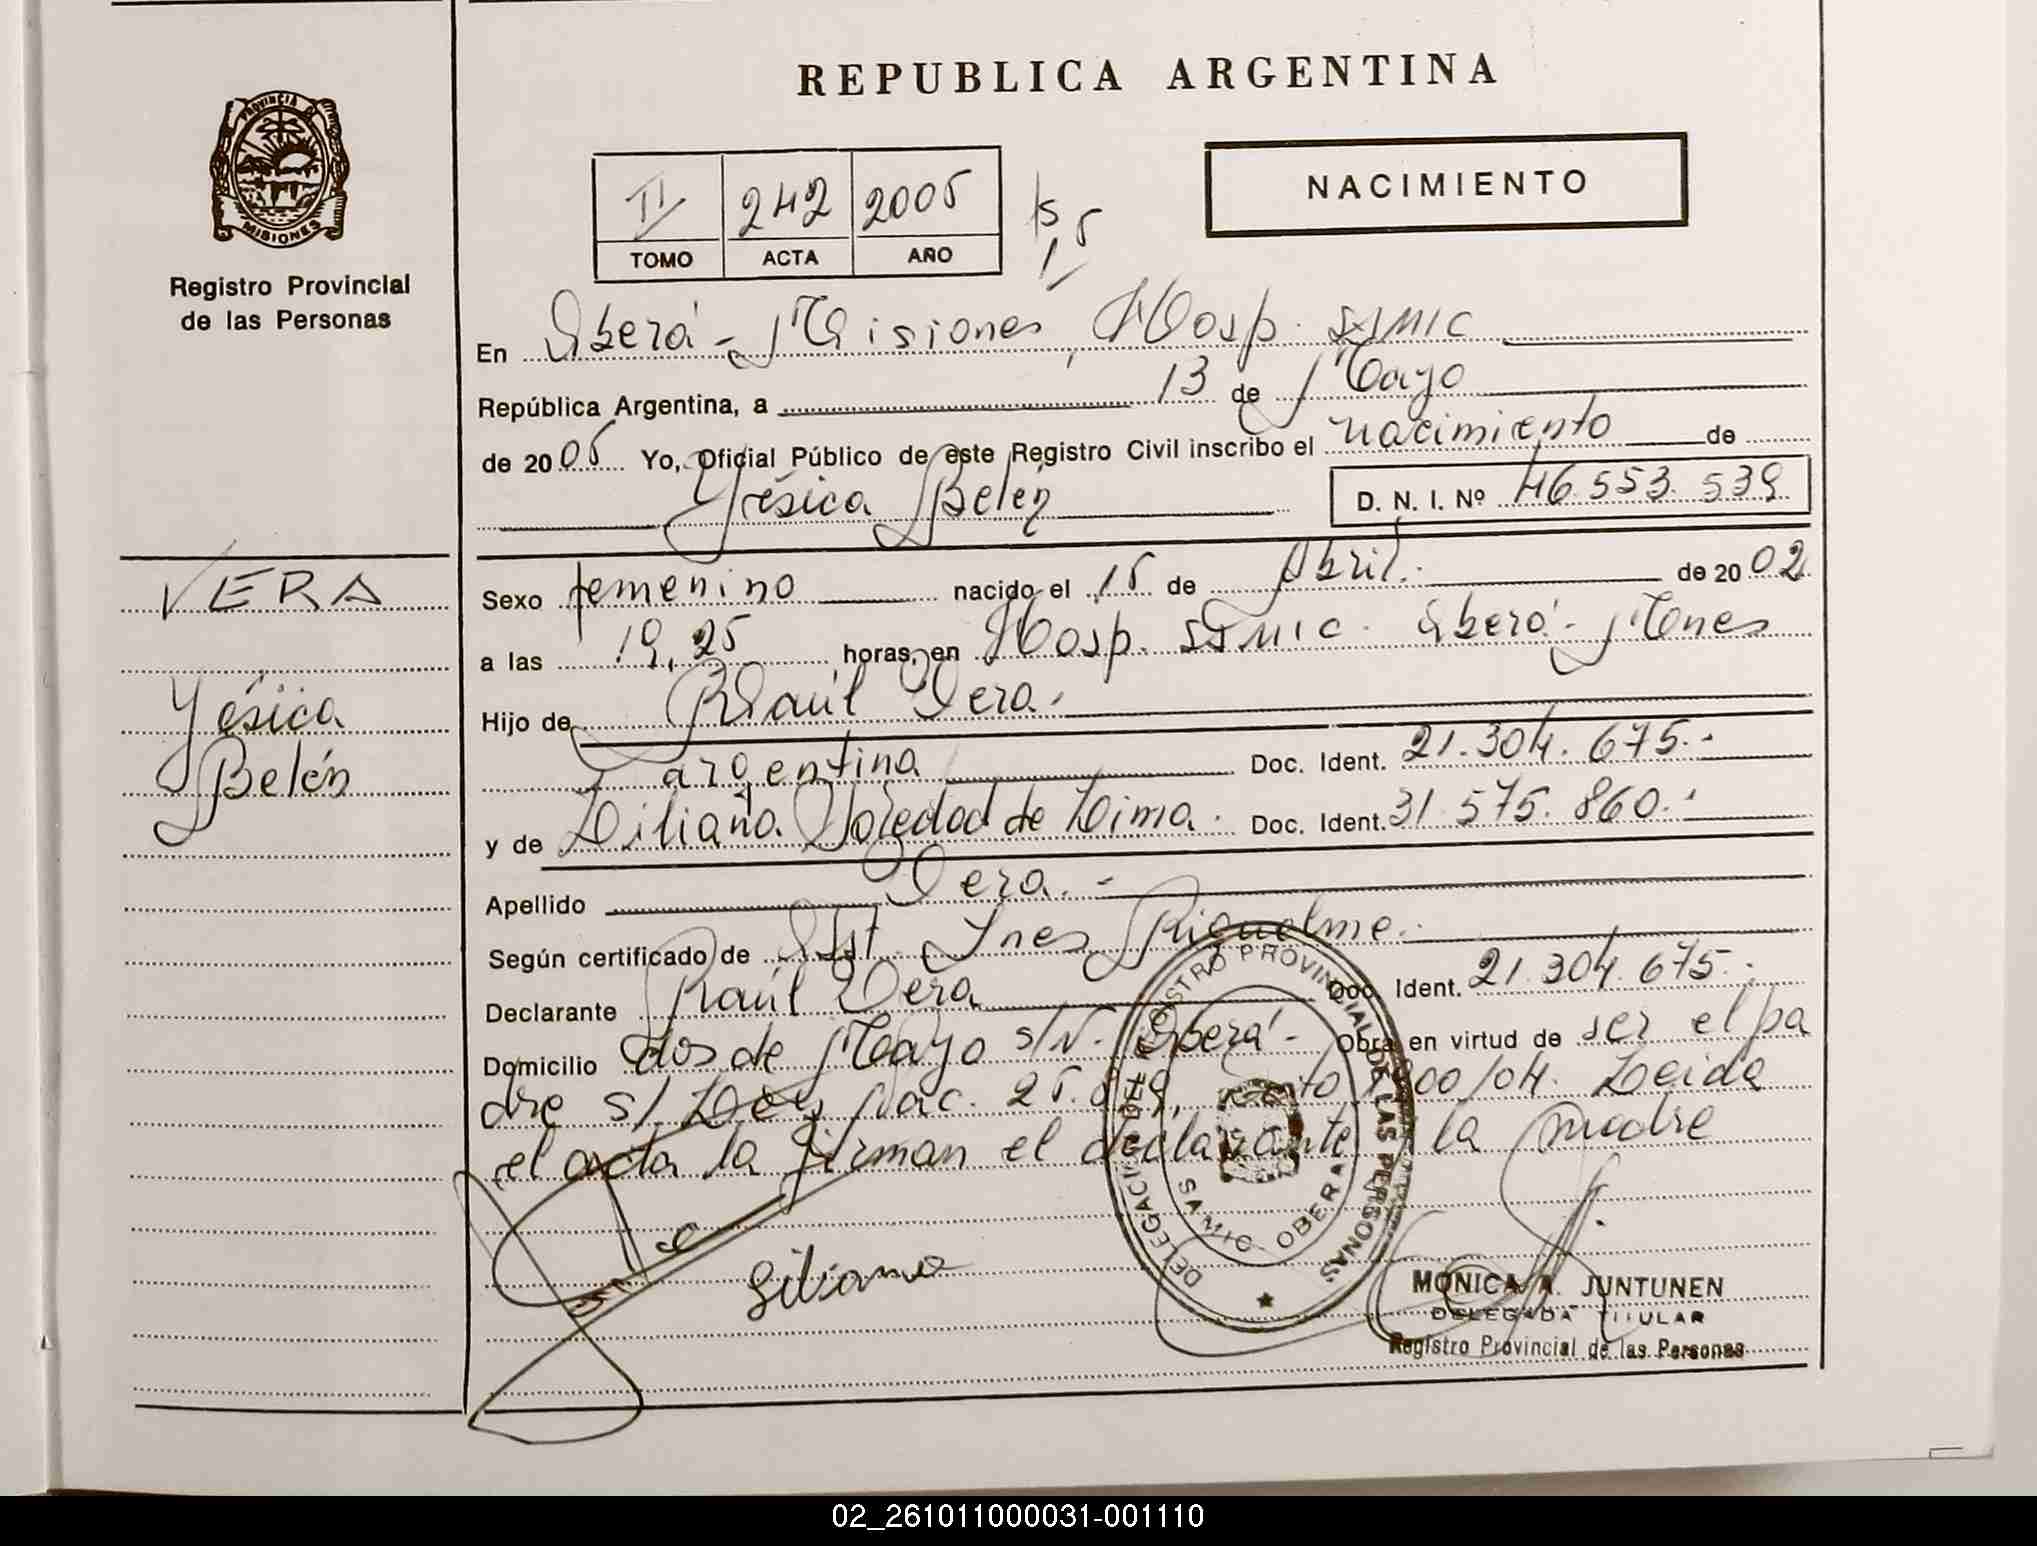 REPUBLICA ARGENTINA
PROVINCIA D
MISIONES
Registro Provincial
de las Personas
II 242 2005
TOMO ACTA AÑO
NACIMIENTO
En Oberá - Misiones, Hosp. SAMIC
República Argentina, a 13 de Mayo
de 2005 Yo, Oficial Público de este Registro Civil inscribo el nacimiento de
Yésica Belén D. N. I. Nº 46.553.539
VERA
Yésica
Belén
Sexo femenino nacido el 15 de Abril. de 2002
a las 19,25 horas, en Hosp. SAMIC. Oberá - Mones
Hijo de Raúl Vera.
argentina Doc. Ident. 21.304.675.-
y de Liliana Soledad de Lima. Doc. Ident. 31.575.860.-
Apellido Vera.-
Según certificado de Obst. Ines Riquelme.
Declarante Raúl Vera Doc. Ident. 21.304.675.-
Domicilio dos de Mayo s/N. Oberá - Obra en virtud de ser el pa
dre s/ Ley Nac. 25.819, /04. Leida
el acta la firman el declarante la madre
Liliana
DELEGACION DEL REGISTRO PROVINCIAL DE LAS PERSONAS
SAMIC OBERA
MONICA A. JUNTUNEN
DELEGADA TITULAR
Registro Provincial de las Personas
02_261011000031-001110